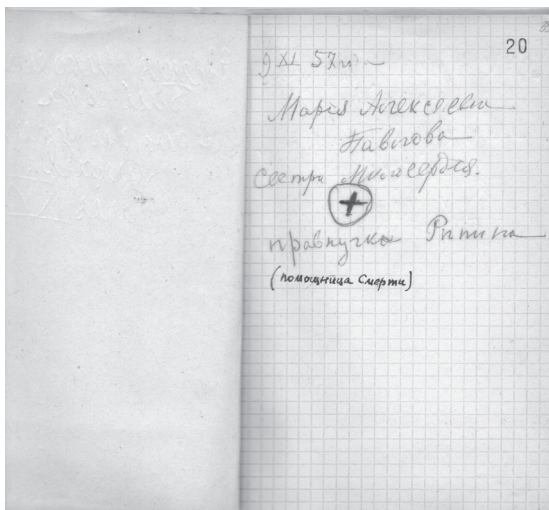 20
9 XI 57 г.
Мария Алексеевна
Павлова
сестра Милосердия.
+
правнучка Рипина
(помощница Смерти)